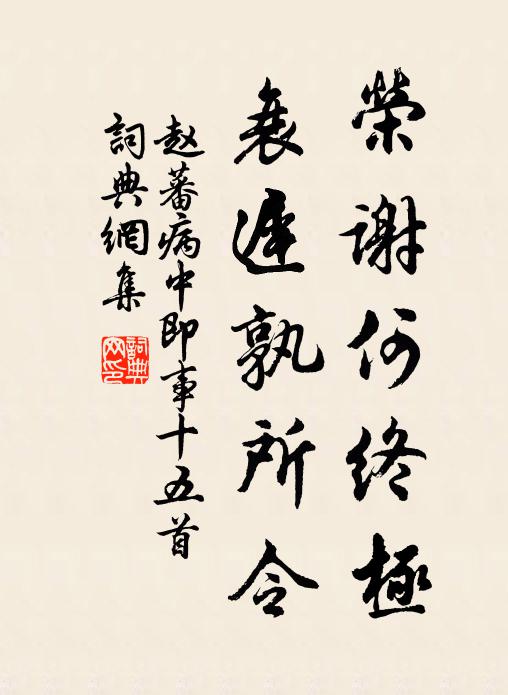 榮謝何終極
衰遲孰所令
赵蕃病中即事十五首
詞典網集
詞典网印